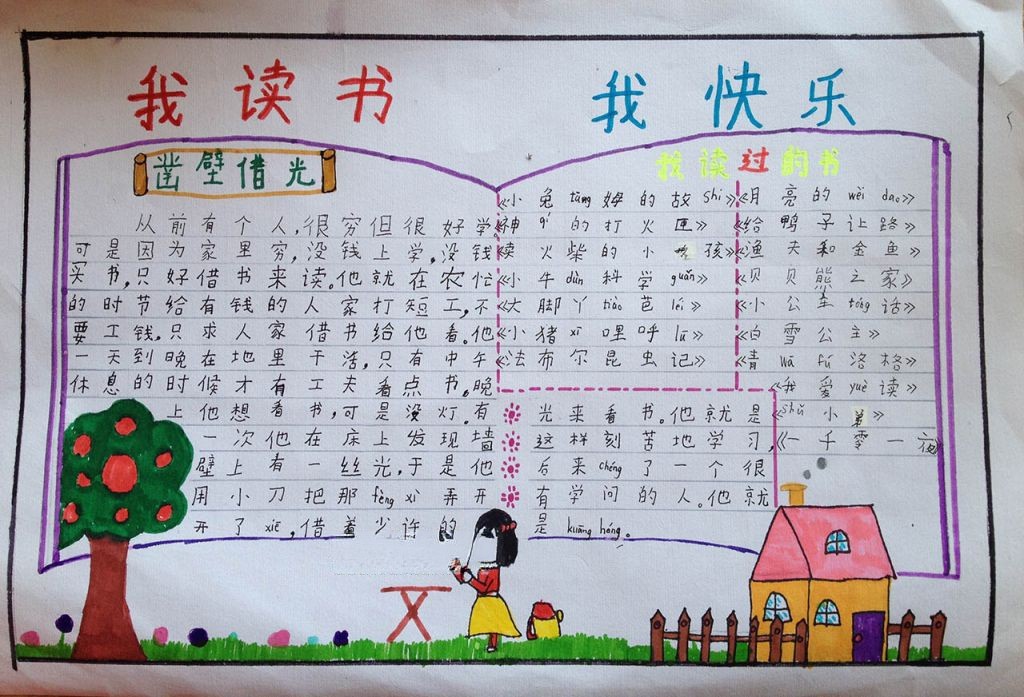 我读书 我快乐
凿壁借光
从前有个人,很穷但很好学。
可是因为家里穷,没钱上学,没钱
买书,只好借书来读。他就在农忙
的时节给有钱的人家打短工,不
要工钱,只求人家借书给他看。他
一天到晚在地里干活,只有中午
休息的时候才有工夫看点书,晚
上他想看书,可是没灯。有
一次他在床上发现墙
壁上有一丝光,于是他
用小刀把那fèng xì弄开
开了xiē,借着少许的
光来看书。他就是
这样刻苦地学习,
后来chéng了一个很
有学问的人。他就
是kuāng héng。
我读过的书
《小兔tāng姆的故shi》
《神qí的打火匣》
《卖火柴的小孩》
《小牛dùn科学guǎn》
《大脚丫tiào芭léi》
《小猪xī哩呼lū》
《法布尔昆虫记》
《月亮的wèi dao》
《给鸭子让路》
《渔夫和金鱼》
《贝贝熊之家》
《小公主tóng话》
《白雪公主》
《青wā fú洛格》
《我爱yuè读》
《shǔ小弟》
《一千零一夜》